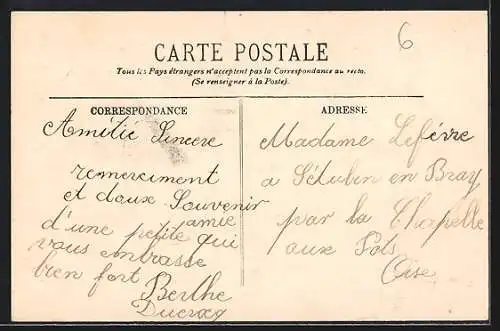 6
CARTE POSTALE
Tous les Pays étrangers n'acceptent pas la Correspondance au recto.
(Se renseigner à la Poste).
CORRESPONDANCE
Amitié Sincere
remerciment
et doux Souvenir
d'une petite amie qui
vous embrasse
bien fort
Berthe
ADRESSE
Madame Lefévre
a St Aubin en Bray
par la Chapelle
aux Pots
Oise